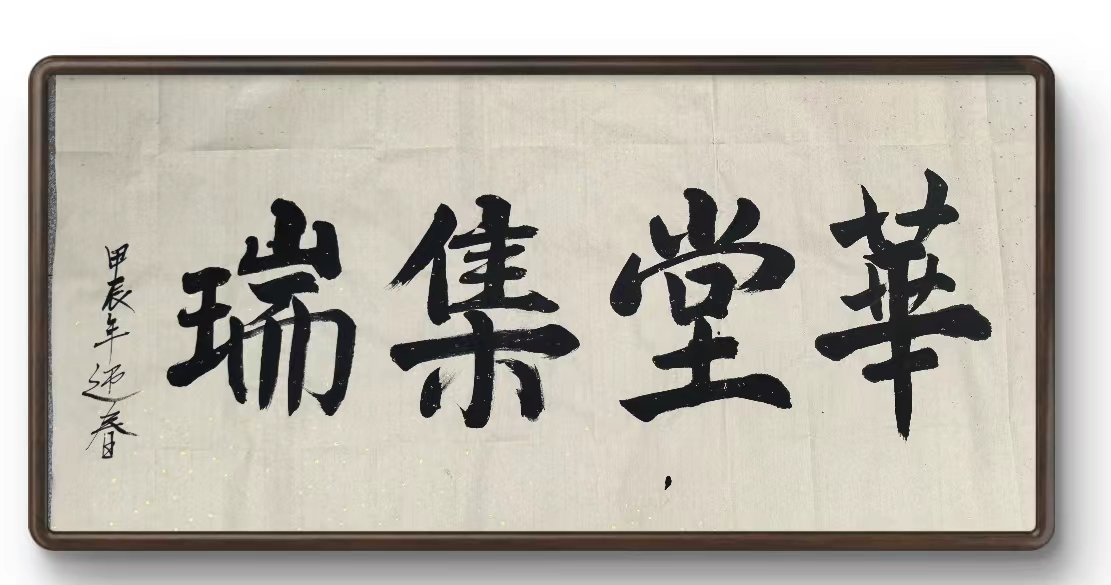 華堂集瑞
甲辰年迎春